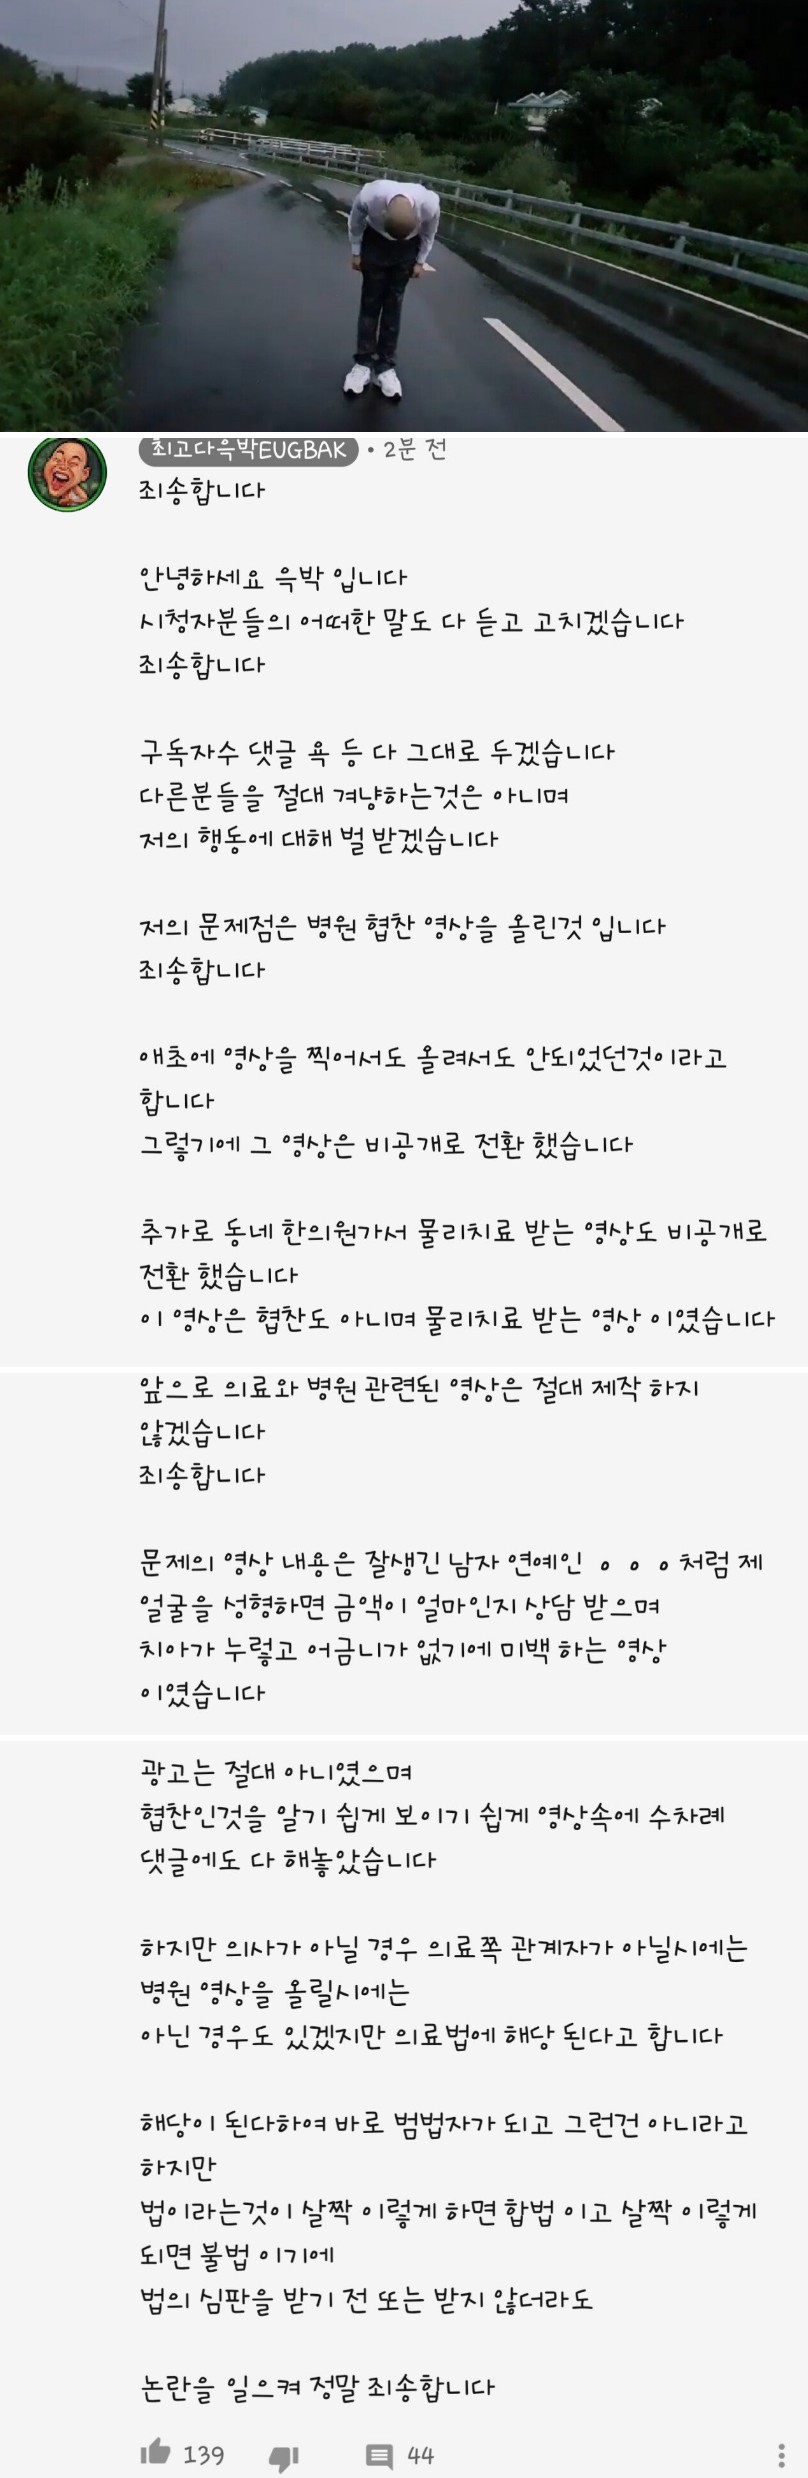 최고다윽박EUGBAK • 2분 전
죄송합니다
안녕하세요 윽박 입니다
시청자분들의 어떠한 말도 다 듣고 고치겠습니다
죄송합니다
구독자수 댓글 욕 등 다 그대로 두겠습니다
다른분들을 절대 겨냥하는것은 아니며
저의 행동에 대해 벌 받겠습니다
저의 문제점은 병원 협찬 영상을 올린것 입니다
죄송합니다
애초에 영상을 찍어서도 올려서도 안되었던것이라고
합니다
그렇기에 그 영상은 비공개로 전환 했습니다
추가로 동네 한의원가서 물리치료 받는 영상도 비공개로
전환 했습니다
이 영상은 협찬도 아니며 물리치료 받는 영상 이였습니다
앞으로 의료와 병원 관련된 영상은 절대 제작 하지
않겠습니다
죄송합니다
문제의 영상 내용은 잘생긴 남자 연예인 ㅇ ㅇ ㅇ 처럼 제
얼굴을 성형하면 금액이 얼마인지 상담 받으며
치아가 누렇고 어금니가 없기에 미백 하는 영상
이였습니다
광고는 절대 아니였으며
협찬인것을 알기 쉽게 보이기 쉽게 영상속에 수차례
댓글에도 다 해놓았습니다
하지만 의사가 아닐 경우 의료쪽 관계자가 아닐시에는
병원 영상을 올릴시에는
아닌 경우도 있겠지만 의료법에 해당 된다고 합니다
해당이 된다하여 바로 범법자가 되고 그런건 아니라고
하지만
법이라는것이 살짝 이렇게 하면 합법 이고 살짝 이렇게
되면 불법 이기에
법의 심판을 받기 전 또는 받지 않더라도
논란을 일으켜 정말 죄송합니다
139 44